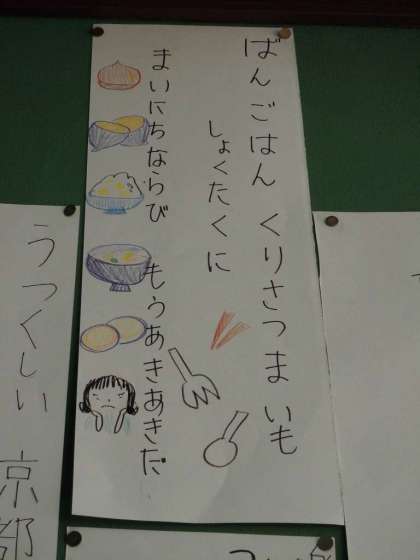 ばんごはん くりさつまいも
しょくたくに
まいにちならび もうあきあきだ
うつくしい京都